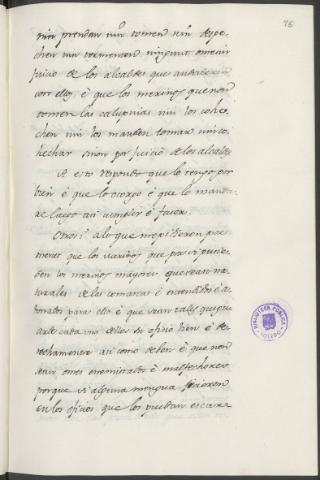 76
nin prendan nin tomen nin despe
chen nin tormenten ninguno omesin
juicio de los alcaldes que anduvieren
con ellos é que los merinos que non
tomen las calupnias nin los cohe
chen nin los manden tomar nin co
hechar sinon por juicio de los alcaldes
A esto respondo que lo tengo por
bien é que lo otorgo é que lo manda
re luego asi cumplir é facer.
Otrosi a lo que me pidieron por
merced que los merinos que por mi pusie
ren los merinos mayores que sean na
turales de las comarcas é entendidos é a
bonados para ello é que sean tales que guar
de cada uno dellos su oficio bien é de
rechamente asi como deben é que non
sean omes enemistados é malfechores
porque si alguna mengua ficieren
en los oficios que los puedan
BIBLIOTECA PUBLICA
TOLEDO